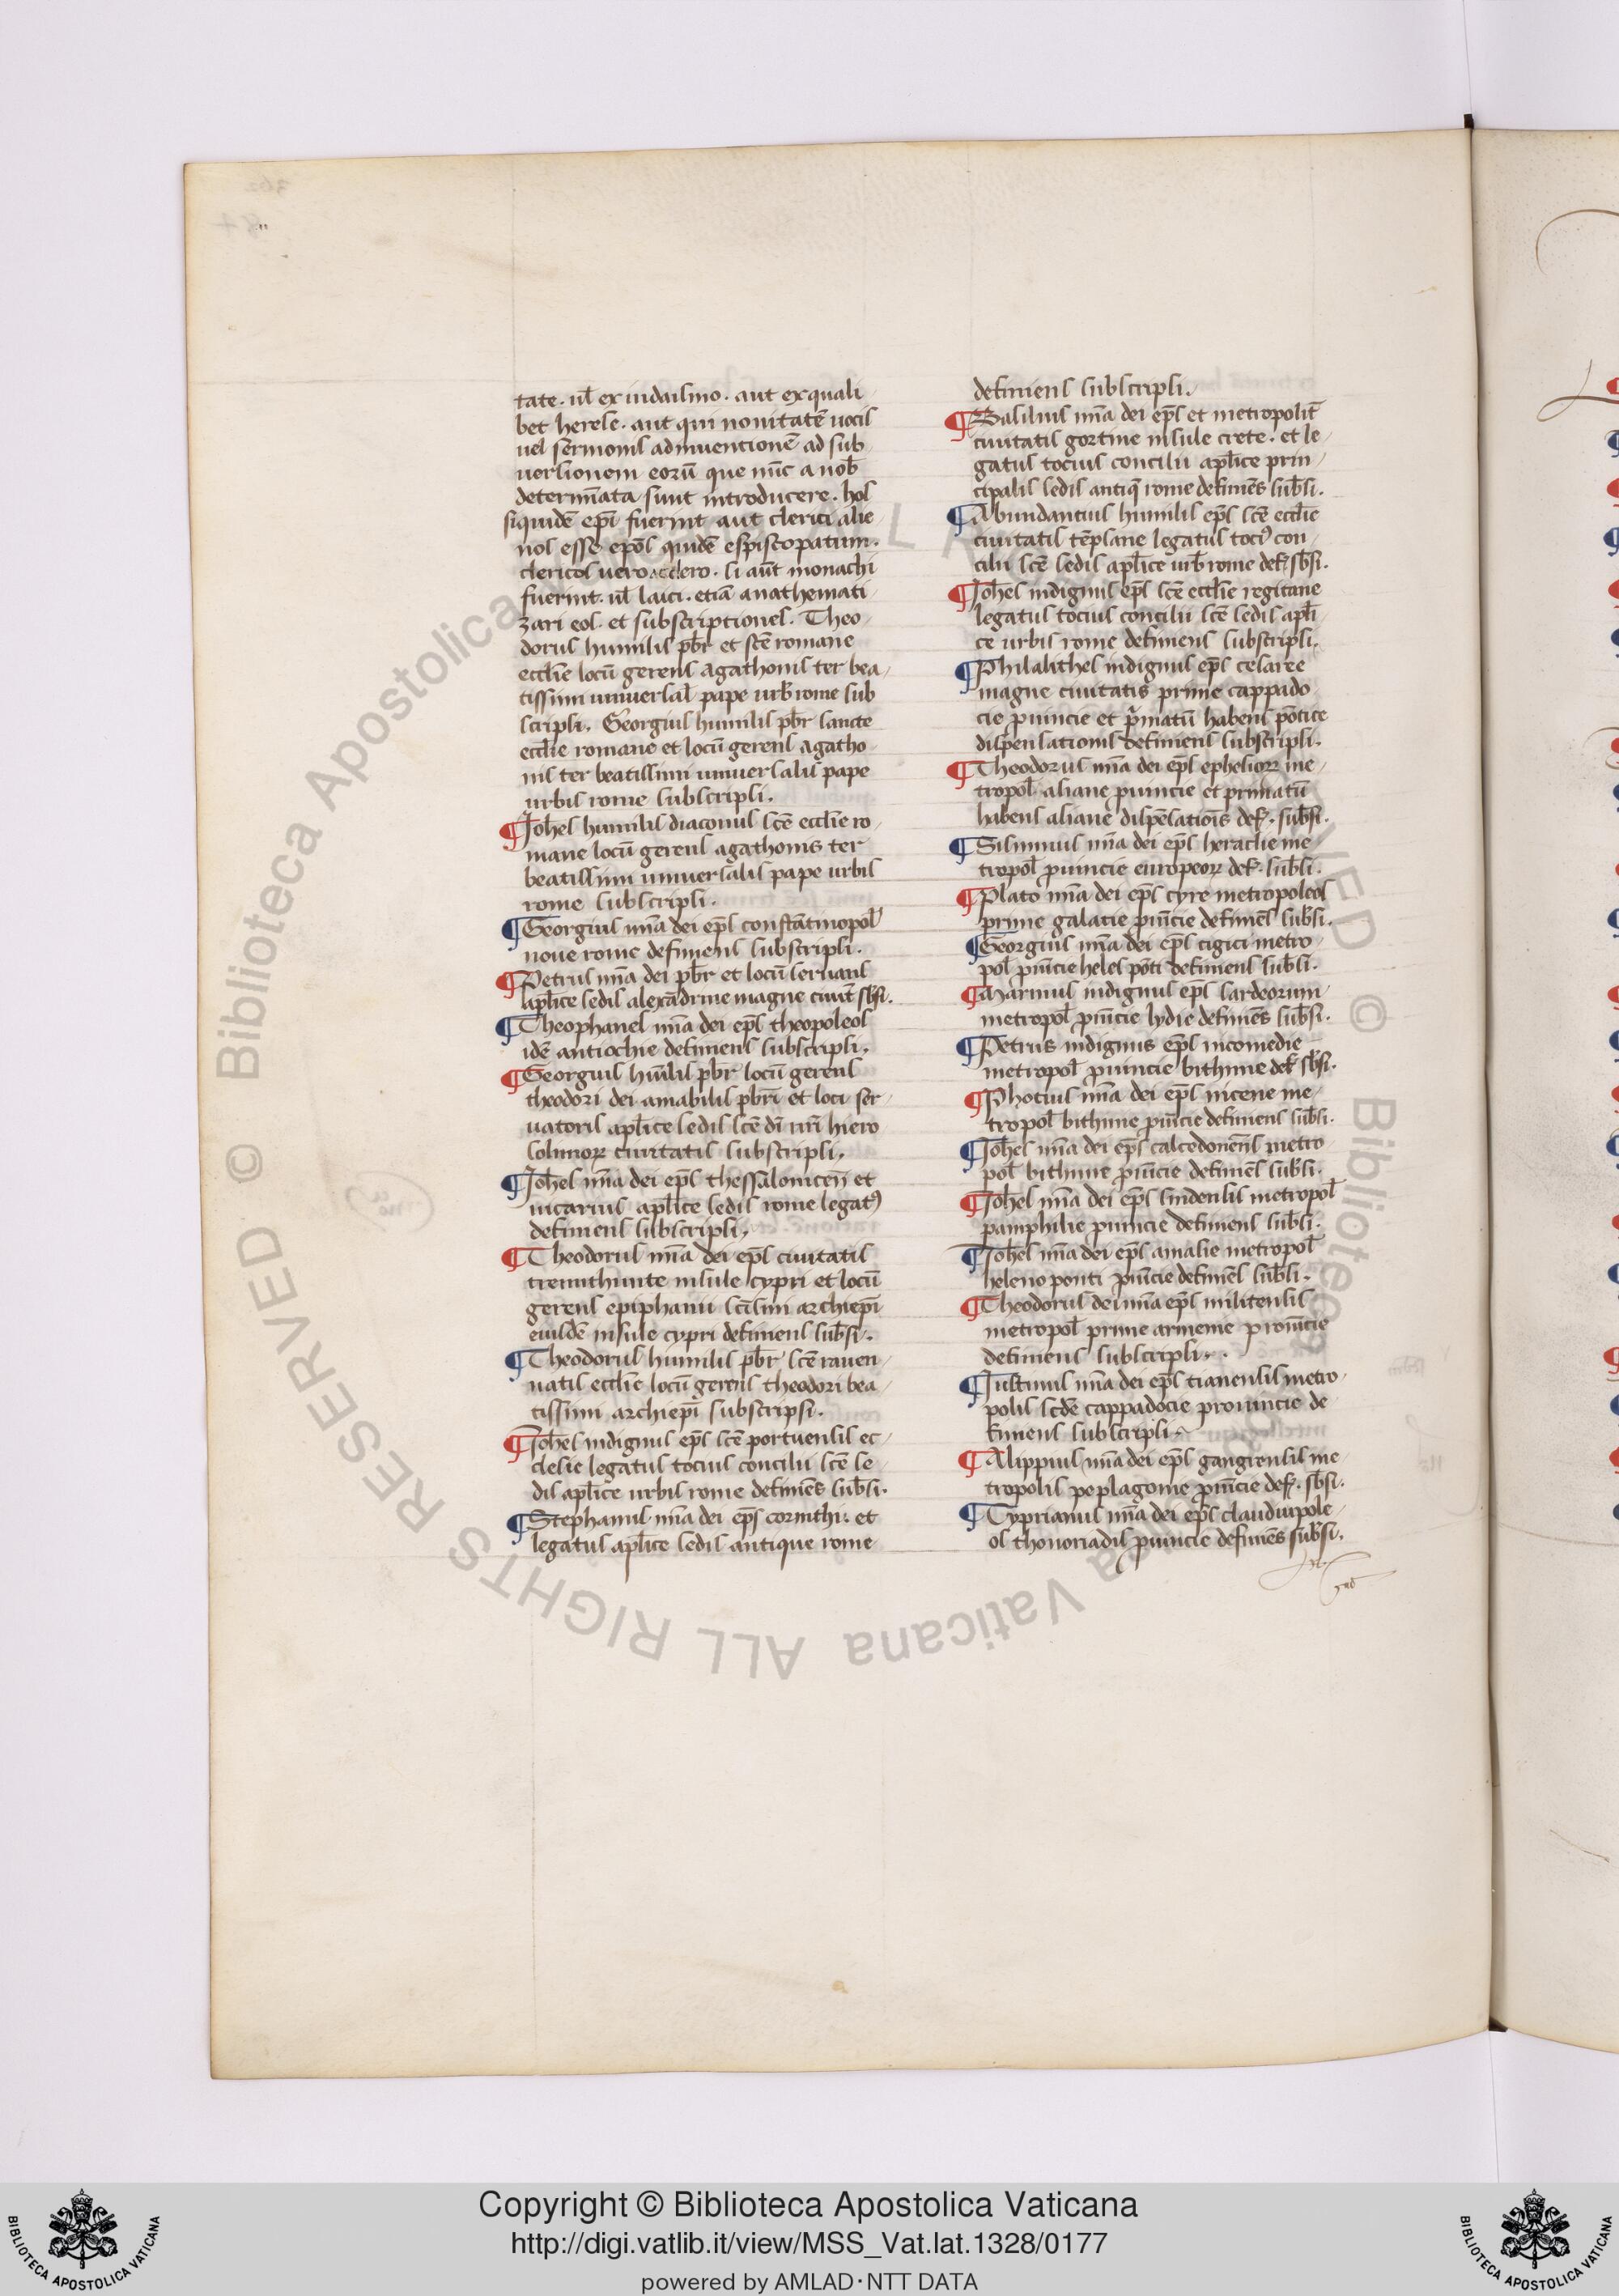 tate. ul̄ ex iudaismo. aut ex quali
bet herese. aut qui nouitatē uocis
uel sermonis adinuentionē ad sub
uersionem eorū que nūc a nob̄
determīata sunt introducere. hos
siquidē ep̄i fuerint aut clerici alie
nos esse ep̄os quidē espiscopatum.
clericos uero a clero. si aūt monachi
fuerint. ul̄ laici. etiā anathemati
zari eos. et subscriptiones. Theo
dorus humilis p̄br et sc̄e romane
eccl̄ie locū gerens agathonis ter bea
tissimi uniuersal̄ pape urb̄ rome sub
scripsi. Georgius humilis p̄br sancte
eccl̄ie romane et locū gerens agatho
nis ter beatissimi uniuersalis pape
urbis rome subscripsi.
¶Ioh̄es humilis diaconus sc̄e eccl̄ie ro
mane locū gerens agathonis ter
beatissimi uniuersalis pape urbis
rome subscripsi.
¶Georgius mīa dei ep̄s constātinopol̄
noue rome definiens subscripsi.
¶Petrus mīa dei p̄br et locū seruans
apl̄ice sedis alexādrine magne ciuit̄ sb̄si.
¶Theophanes mīa dei ep̄s theopoleos
idē antiochie definiens subscripsi.
¶Georgius hūilis p̄br locū gerens
theodori dei amabilis p̄bri et loci ser
uatoris apl̄ice sedis sc̄e dī nr̄i hiero
solimoꝝ ciuitatis subscripsi.
¶Ioh̄es mīa dei ep̄s thessalonicen̄ et
uicarius apl̄ice sedis rome legatꝰ
definiens subscripsi.
¶Theodorus mīa dei ep̄s ciuitatis
tremithunte insule cypri et locū
gerens epiphanii sc̄issimi archiep̄i
eiusdē insule cypri definiens sub̄si.
¶Theodorus humilis p̄br sc̄e rauen
natis eccl̄ie locū gerens theodori bea
tissimi archiep̄i subscripsi.
¶Ioh̄es indignus ep̄s sc̄e portuensis ec
clesie legatus tocius concilii sc̄e se
dis apl̄ice urbis rome definiēs sub̄si.
¶Stephanus mīa dei ep̄s corinthi. et
legatus apl̄ice sedis antique rome
definiens subscripsi.
¶Basilius mīa dei ep̄s et metropolit̄
ciuitatis gortine insule crete. et le
gatus tocius concilii apl̄ice prin
cipalis sedis antiq̄ rome definiēs sub̄si.
¶Abundantius humilis ep̄s sc̄e eccl̄ie
ciuitatis tēplane legatus tocꝰ con
cilii sc̄e sedis apl̄ice urb̄ rome def. sb̄si.
¶Ioh̄es indignus ep̄s sc̄e eccl̄ie regitane
legatus tocius concilii sc̄e sedis apl̄i
ce urbis rome definiens subscripsi.
¶Philalithes indignus ep̄s cesaree
magne ciuitatis prime cappado
cie puincie et p̄matū habens pōtice
dispensationis definiens subscripsi.
¶Theodorus mīa dei ep̄s ephesioꝝ me
tropol̄ asiane puincie et primatū
habens asiane dispēsatiōis def. sub̄si.
¶Sisinnius mīa dei ep̄s heraclie me
tropol̄ puincie europeoꝝ def. sub̄si.
¶Plato mīa dei ep̄s cyre metropoleos
prime galatie puīcie definiēs sub̄si.
¶Georgius mīa dei ep̄s cigici metro
pol̄ puīcie heles pōti definiens sub̄si.
¶Marinus indignus ep̄s sardeorum
metropol̄ puīcie lydie definiēs sub̄si.
¶Petrus indignus ep̄s nicomedie
metropol̄ puincie bithinie def sb̄si.
¶Photius mīa dei ep̄s nicene me
tropol̄ bithinie puīcie definiens sub̄si.
¶Ioh̄es mīa dei ep̄s calcedonēsis metro
pol̄ bithinie puīcie definiēs sub̄si.
¶Ioh̄es mīa dei ep̄s sindensis metropol̄
pamphilie puincie definiens sub̄si.
¶Ioh̄es mīa dei ep̄s amasie metropol̄
heleno ponti puīcie definiēs sub̄si.
¶Theodorus dei mīa ep̄s militensis
metropol̄ prime armenie prouīcie
definiens subscripsi.
¶Iustinus mīa dei ep̄s tianensis metro
polis scd̄e cappadocie prouincie de
finiens subscripsi.
¶Alippius mīa dei ep̄s gangrensis me
tropolis peplagonie puīcie def. sb̄si.
¶Cyprianus mīa dei ep̄s claudiupole
os thonoriadis puincie definiēs sub̄si.
Copyright © Biblioteca Apostolica Vaticana
http://digi.vatlib.it/view/MSS_Vat.lat.1328/0177
powered by AMLAD·NTT DATA
BIBLIOTECA APOSTOLICA VATICANA
BIBLIOTECA APOSTOLICA VATICANA
© Biblioteca Apostolica Vaticana ALL RIGHTS RESERVED